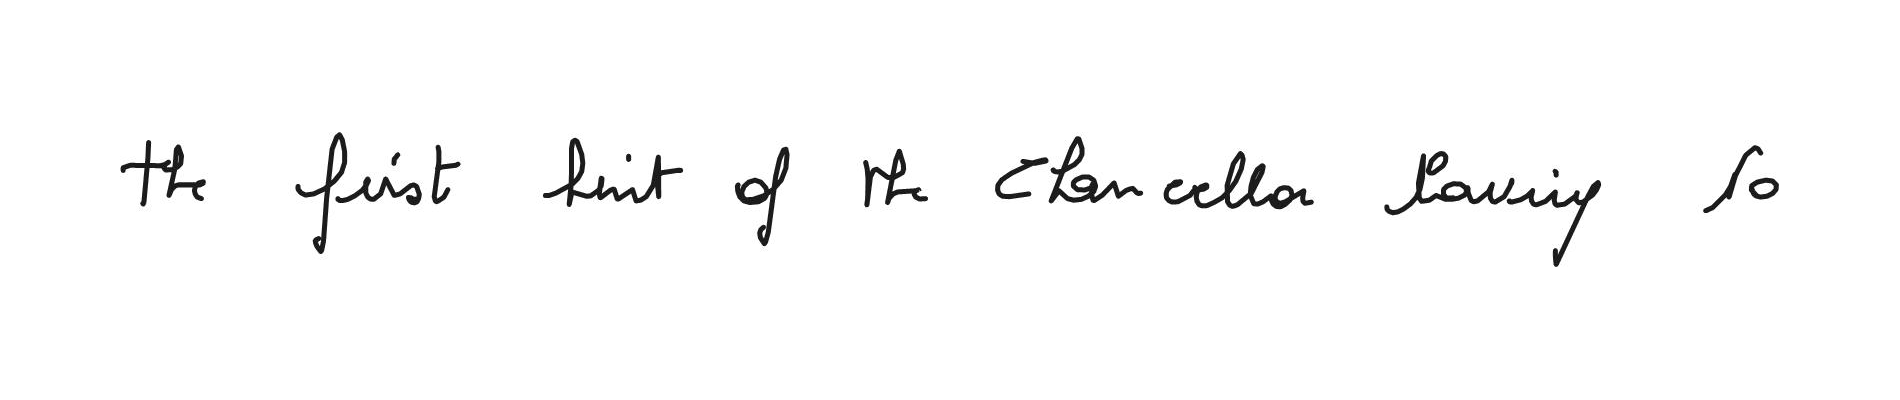 the first hint of the Chancellor having so